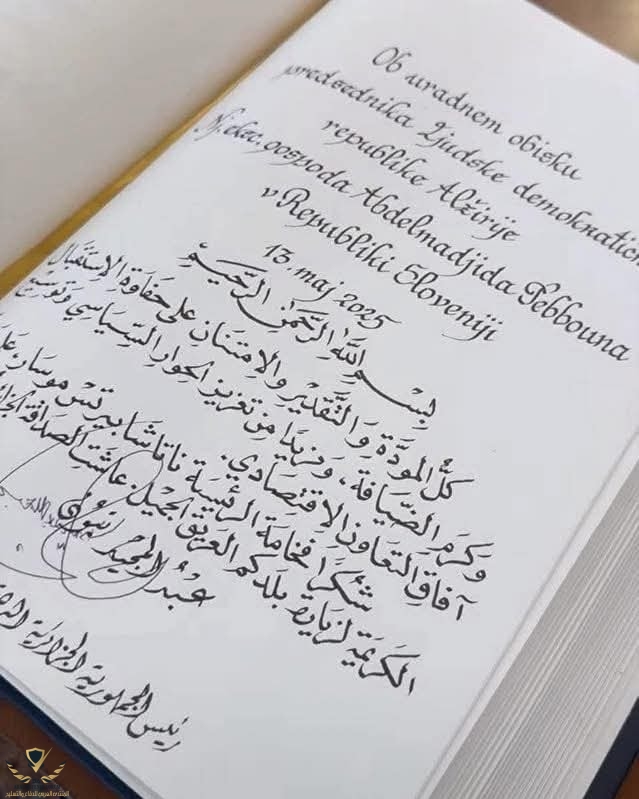 Ob uradnem obisku
predsednika Ljudske demokratičn
republike Alžirije
Nj. eksc. gospoda Abdelmadjida Tebbouna
v Republiki Sloveniji
13. maj 2025
بِسْمِ اللَّهِ الرَّحْمَنِ الرَّحِيمِ
كلُّ المودَّة وَ التَّقدير والاِمتنان على حفاوَة الاِستقبال
وكرَم الضّيافة، ومزيدًا مِن تعزيز الحِوار السِّيَاسي وتوسيع
آفاق التعاون الاِقتصادي.
شكرًا فخامة الرئيسَة ناتاشا بيرتس موسار على
الكريمَة لزيارة بلدكم العريق الجميل. عاشَت الصداقة
عبْدُ المجيد تبّون
رئيس الجمهورية الجزائرية
المنتدى العربي للدفاع والتسليح